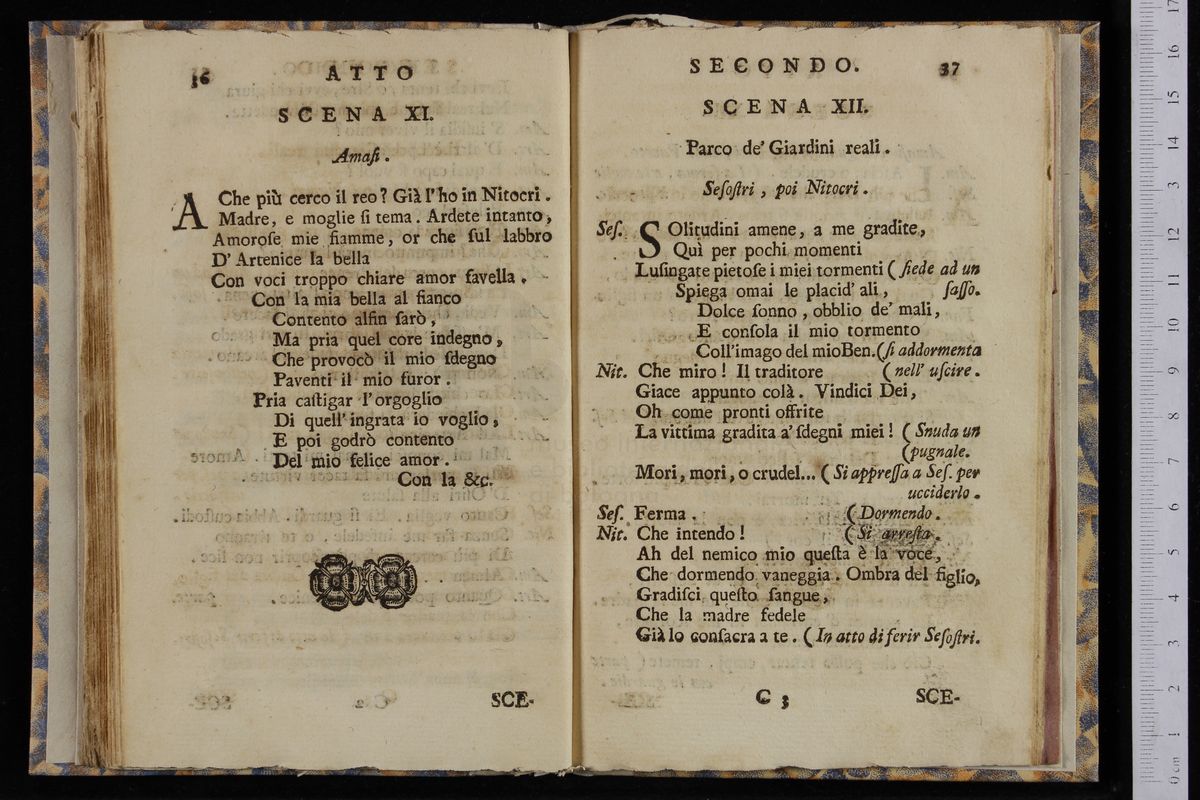 36
ATTO
SCENA XI.
Amaſi.
A Che più cerco il reo? Già l'ho in Nitocri.
Madre, e moglie ſi tema. Ardete intanto,
Amoroſe mie fiamme, or che ſul labbro
D'Artenice la bella
Con voci troppo chiare amor favella.
Con la mia bella al fianco
Contento alfin farò,
Ma pria quel core indegno,
Che provocò il mio ſdegno
Paventi il mio furor.
Pria caſtigar l'orgoglio
Di quell'ingrata io voglio,
E poi godrò contento
Del mio felice amor.
Con la &c.
SCE-
SECONDO.
37
SCENA XII.
Parco de' Giardini reali.
Seſoſtri, poi Nitocri.
Seſ. SOlitudini amene, a me gradite,
Quì per pochi momenti
Luſingate pietoſe i miei tormenti (ſiede ad un
Spiega omai le placid' ali, ſaſſo.
Dolce ſonno, obblio de' mali,
E conſola il mio tormento
Coll'imago del mioBen.(ſi addormenta
Nit. Che miro! Il traditore (nell' uſcire.
Giace appunto colà. Vindici Dei,
Oh come pronti offrite
La vittima gradita a' ſdegni miei! (Snuda un
(pugnale.
Mori, mori, o crudel... (Si appreſſa a Seſ. per
ucciderlo.
Seſ. Ferma. (Dormendo.
Nit. Che intendo! (Si arreſta.
Ah del nemico mio queſta è la voce,
Che dormendo vaneggia. Ombra del figlio,
Gradiſci queſto ſangue,
Che la madre fedele
Già lo conſacra a te. (In atto di ferir Seſoſtri.
C 3
SCE-